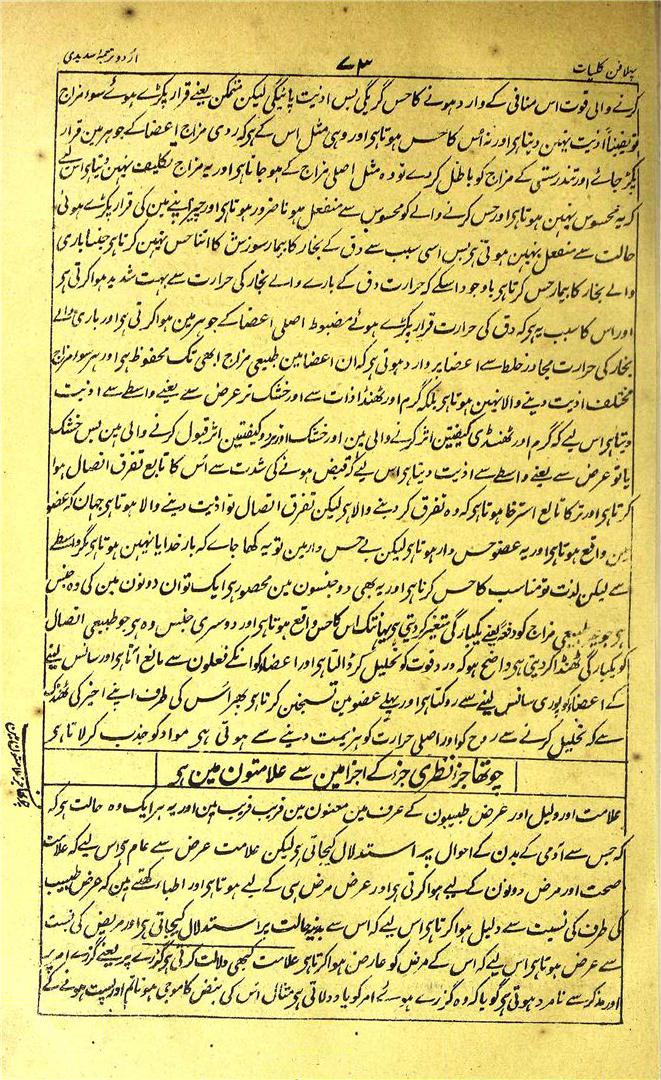 پہلا فن کلیات
۷۳
اردو ترجمہ سدیدی
کرنے والی قوت اس منافی کے وارد ہونے کا حس کریگی بس اذیت پائیگی لیکن متمکن یعنے قرار پکڑے ہوئے سوء مزاج
تو یقیناً اذیت نہین دیتا ہی اور نہ اُس کا حس ہوتا ہی اور وہی مثل اس کے ہی کہ ردی مزاج اعضا کے جوہر مین قرار
پکڑ جائے اور تندرستی کے مزاج کو باطل کر دے تو وہ مثل اصلی مزاج کے ہو جاتا ہی اور یہ مزاج تکلیف نہین دیتا ہی اس لیے
کہ یہ محسوس نہین ہوتا ہی اور حس کرنے والے کو محسوس سے منفعل ہونا ضرور ہوتا ہی اور چیز اپنے مین کی قرار پکڑے ہوئی
حالت سے منفعل نہین ہوتی ہی بس اسی سبب سے دق کے بخار کا بیمار سوزش کا اتنا حس نہین کرتا ہی جتنا باری
والے بخار کا بیمار حس کرتا ہی باوجود اسکے کہ حرارت دق کے بارے والے بخار کی حرارت سے بہت شدید ہوا کرتی ہی
اور اس کا سبب یہ ہی کہ دق کی حرارت قرار پکڑے ہوئے مضبوط اصلی اعضا کے جوہر مین ہوا کرتی ہی اور باری والے
بخار کی حرارت مجاور خلط سے اعضا پر وارد ہوتی ہی کہ ان اعضا مین طبیعی مزاج ابھی تک محفوظ ہی اور ہر سوء مزاج
مختلف اذیت دینے والا نہین ہوتا ہی بلکہ گرم اور ٹھنڈا ذات سے اور خشک تر عرض سے یعنے واسطے سے اذیت
دیتا ہی اس لیے کہ گرم اور ٹھنڈی کیفیتین اثر کرنے والی ہین اور خشک اور تر دو کیفیتین اثر قبول کرنے والی ہین بس خشک
یا تو عرض سے یعنے واسطے سے اذیت دیتا ہی اس لیے کہ قبض ہونے کی شدت سے اُس کا تابع تفرق اتصال ہوا
کرتا ہی اور تر کا تابع استرخا ہوتا ہی کہ وہ تفرق کر دینے والا ہی لیکن تفرق اتصال تو اذیت دینے والا ہوتا ہی جہان کہ عضو
مین واقع ہوتا ہی اور یہ عضو حس دار ہوتا ہی لیکن بے حس دار مین تو یہ کہا جائے کہ بار خدایا نہین ہوتا ہی مگر واسطے
سے لیکن لذت تو مناسب کا حس کرنا ہی اور یہ بھی دو جنسون مین محصور ہی ایک تو ان دونون مین کی وہ جنس
ہی جو طبیعی مزاج کو دفعۃً یعنے یکبارگی متغیر کر دیتی ہی یہانتک اس کا حس واقع ہوتا ہی اور دوسری جنس وہ ہی جو طبیعی اتصال
کو یکبارگی ٹھنڈا کر دیتی ہی واضح ہو کہ درد قوت کو تحلیل کر ڈالتا ہی اور اعضا کو انکے فعلون سے مانع آتا ہی اور سانس لینے
کے اعضا کو پوری سانس لینے سے روکتا ہی اور پہلے عضو مین تسخین کرتا ہی پھر اُس کی طرف اپنے اخیر کی ٹھنڈک
سے کہ تحلیل کرنے سے روح کو اور اصلی حرارت کو ہزیمت دینے سے ہوتی ہی مواد کو جذب کر لاتا ہی
چوتھا جز نظری جز کے اجزا مین سے علامتون مین ہی
علامت اور دلیل اور عرض طبیبون کے عرف مین معنون مین قریب قریب ہین اور یہ ہر ایک وہ حالت ہی کہ
کہ جس سے آدمی کے بدن کے احوال پر استدلال کیجاتی ہی لیکن علامت عرض سے عام ہی اس لیے کہ علامت
صحت اور مرض دونون کے لیے ہوا کرتی ہی اور عرض مرض ہی کے لیے ہوتا ہی اور اطباء کہتے ہین کہ عرض طبیب
کی طرف کی نسبت سے دلیل ہوا کرتا ہی اس لیے کہ اس سے بدنی حالت پر استدلال کیجاتی ہی اور مریض کی نسبت
سے عرض ہوتا ہی اس لیے کہ اس کے مرض کو عارض ہوا کرتا ہی علامت کبھی دلالت کرتی ہی گزرے پر یعنے گزرے امر پر
اور مذکر سے نامزد ہوتی ہی گویا کہ وہ گزرے ہوئے امر کو یاد دلاتی ہی مثال اس کی نبض کا موجی ہونا نم اور پست ہونے کے